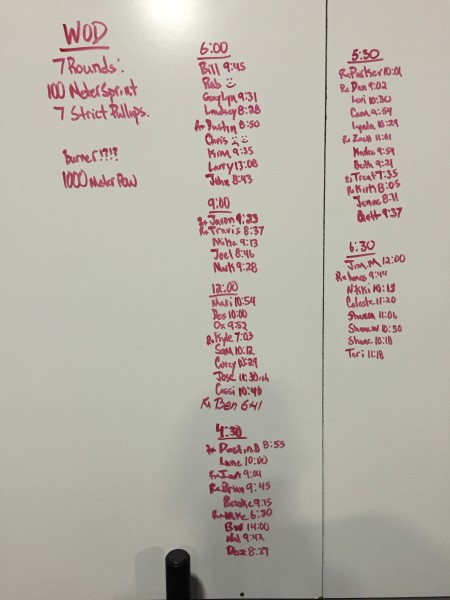 WOD
7 Rounds:
100 Meter Sprint
7 Strict Pullups.
Burner!?!?
1000 Meter Row
6:00
Bill 9:45
Rob
Gaylyn 9:31
Lindsey 8:28
Rx Dustin 8:50
Chris
Kim 9:35
Larry 13:08
John 8:43
9:00
Rx Jason 9:23
Rx Travis 8:37
Mike 9:13
Joel 8:46
Mark 9:28
12:00
10:54
Des 10:00
Ox 9:52
Rx Kyle 7:03
Sam 10:12
Corey 10:29
Jose
Cassi 10:48
Rx Ben 6:41
4:30
Rx Dustin B 8:53
Lane 10:00
Rx Ian 9:04
Rx Brian 9:45
Brooke 9:15
Rx Mike 6:30
BW 14:00
9:42
8:27
5:30
Rx Parker 10:01
Rx Dan 9:02
Lori 10:30
Cam 9:54
Lynda 10:29
Rx Zach 11:01
9:59
Beth 9:21
Rx Trent 7:35
Rx Kirk 8:05
8:11
Brett 9:37
6:30
Jim M 12:00
Rx 9:44
Nikki 10:13
Celeste 11:20
Shawna 11:06
Shane W 10:30
Shane 10:18
Teri 11:18